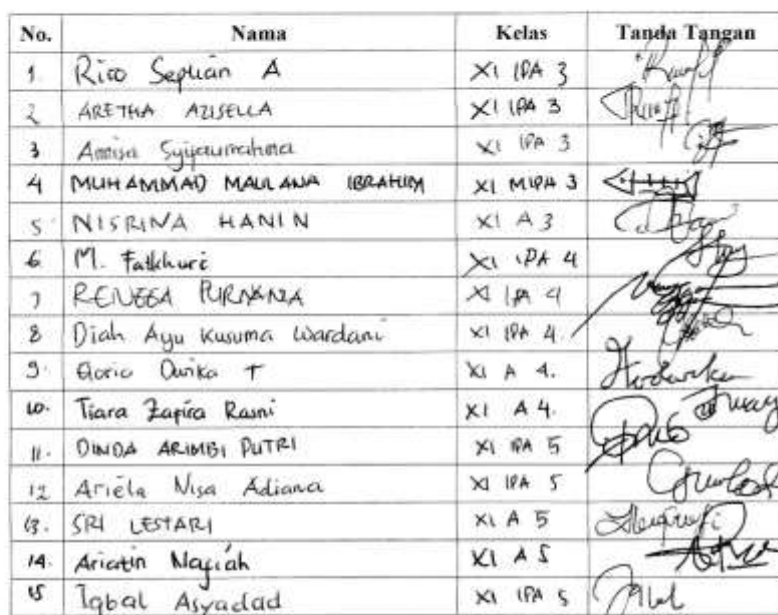 No. Nama Kelas Tanda Tangan
1. Rico Septian A XI IPA 3
2 ARETHA AZISELLA XI IPA 3
3 Annisa XI IPA 3
4 MUHAMMAD MAULANA IBRAHIM XI MIPA 3
5. NISRINA HANIN XI A 3
6. M. Fatkhuri XI IPA 4
7 PURNAMA XI IPA 4
8 Diah Ayu Kusuma Wardani XI IPA 4.
9. T XI A 4.
10. Tiara Zapira Rasni XI A 4.
11. DINDA ARIMBI PUTRI XI IPA 5
12 Ariela Nisa Adiana XI IPA 5
13. SRI LESTARI XI A 5
14. XI A 5
15 Iqbal Asyadad XI IPA 5